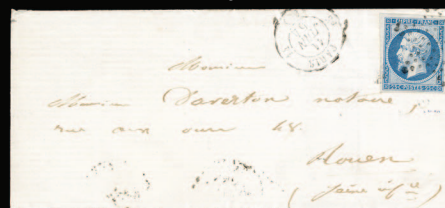 EMPIRE FRANC
20c POSTES 20c
PARIS
Monsieur
Monsieur Daverton notaire,
rue aux ours 48.
Rouen
(Seine infre)